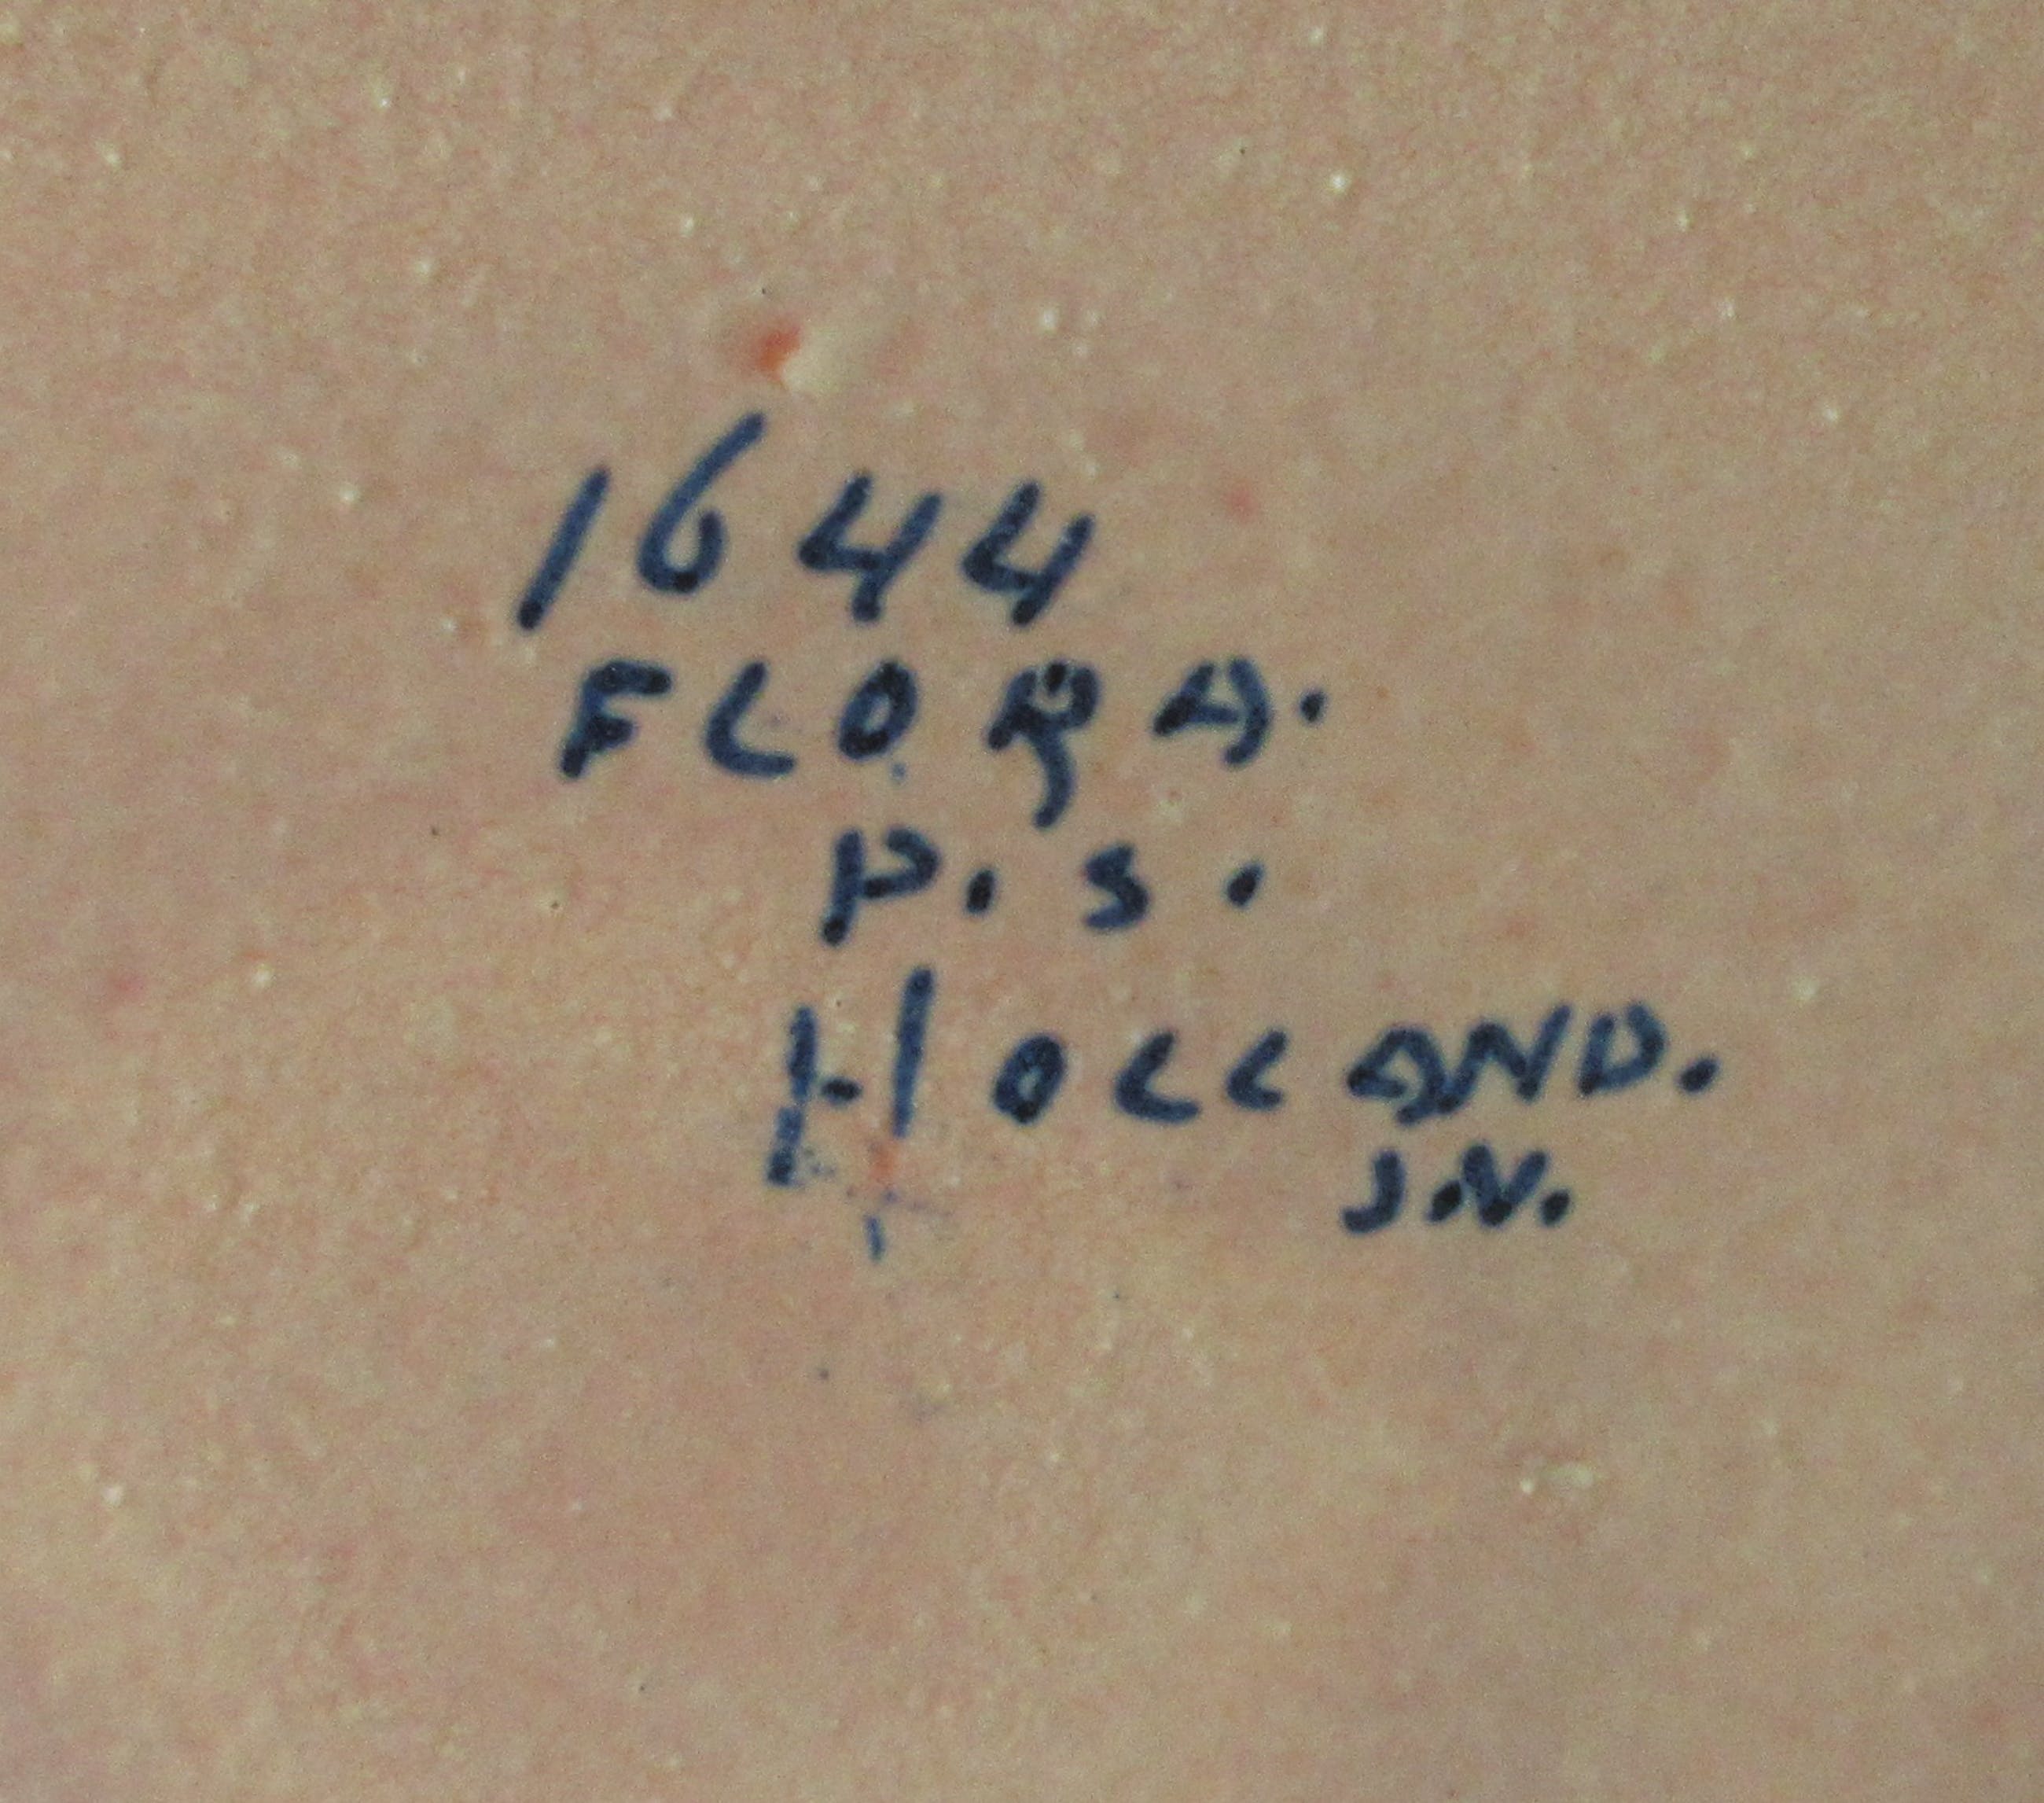 1644
FLORA.
P.S.
HOLLAND.
J.V.